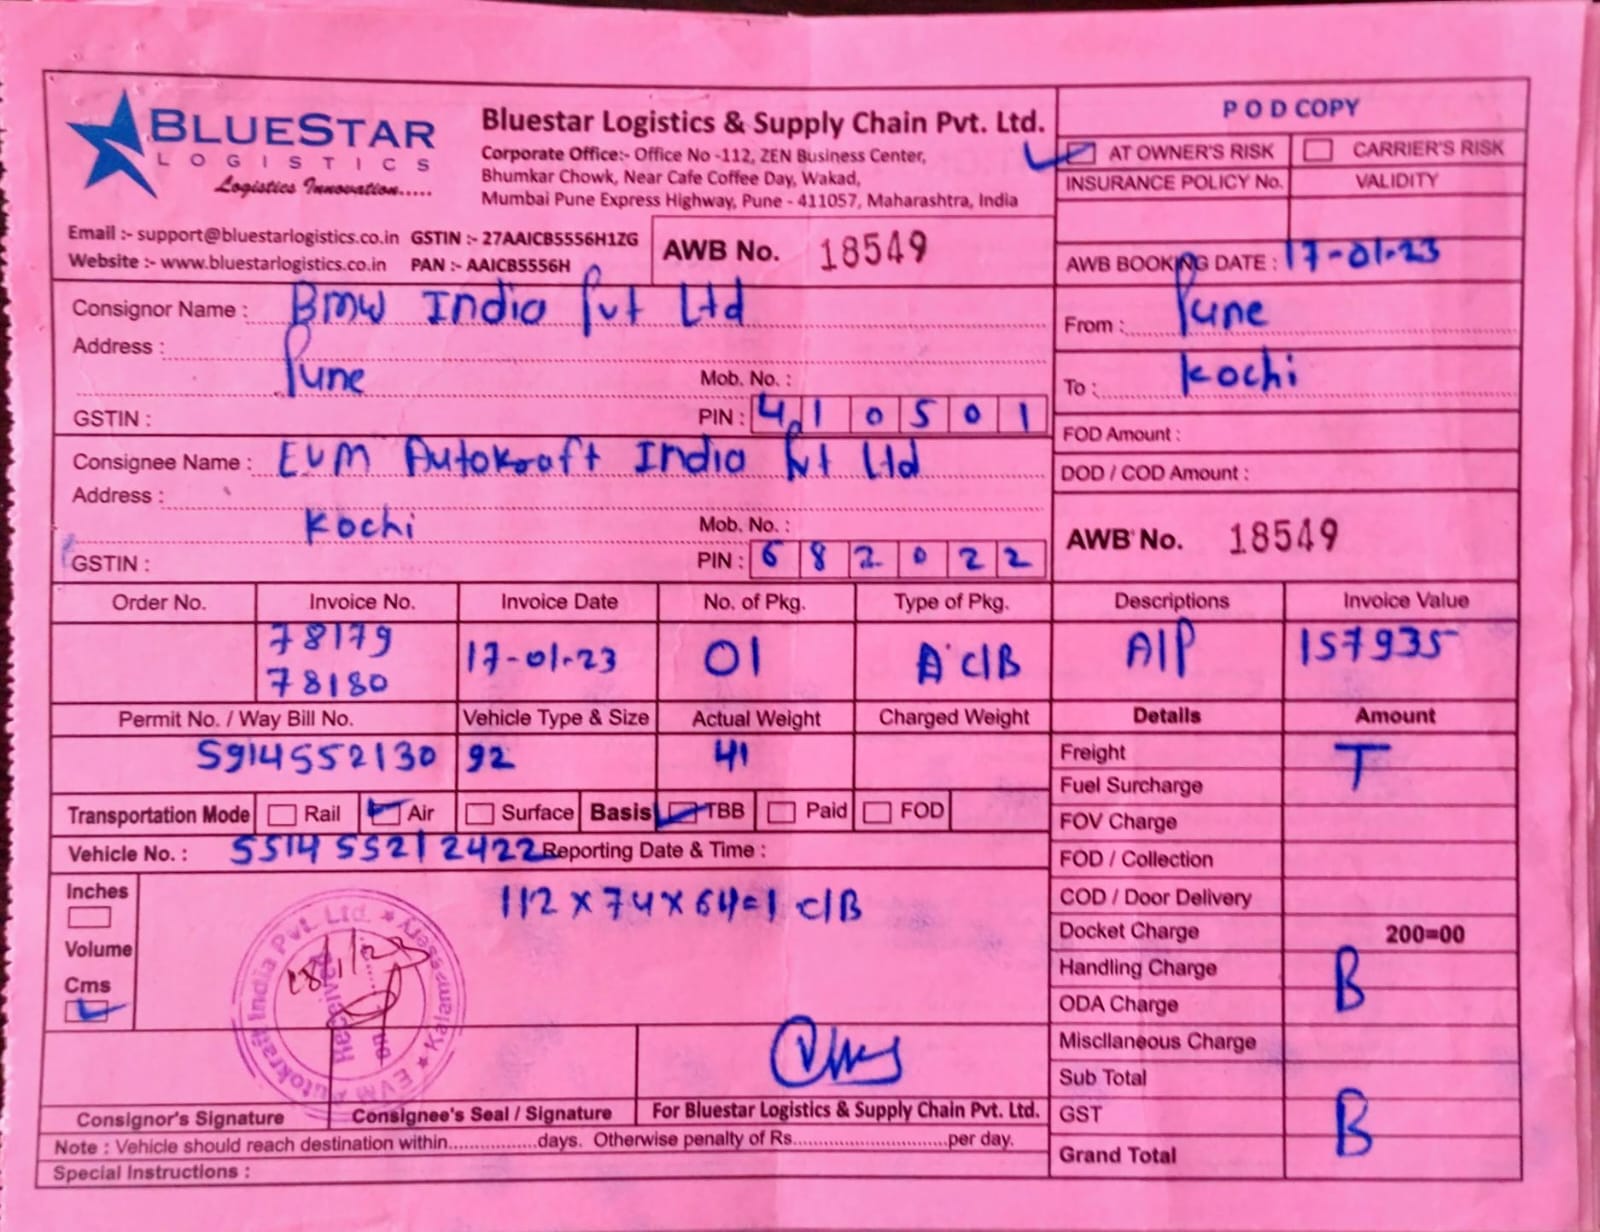 BLUESTAR
LOGISTICS
Logistics Innovation.....
Bluestar Logistics & Supply Chain Pvt. Ltd.
Corporate Office:- Office No -112, ZEN Business Center,
Bhumkar Chowk, Near Cafe Coffee Day, Wakad,
Mumbai Pune Express Highway, Pune - 411057, Maharashtra, India
P O D COPY
AT OWNER'S RISK CARRIER'S RISK
INSURANCE POLICY No. VALIDITY
Email :- support@bluestarlogistics.co.in GSTIN :- 27AAICB5556H1ZG
Website :- www.bluestarlogistics.co.in PAN :- AAICB5556H
AWB No. 18549
AWB BOOKING DATE : 17-01-23
Consignor Name : BMW India Pvt Ltd
Address :
Pune Mob. No. :
GSTIN : PIN : 410501
From : Pune
To : Kochi
Consignee Name : EVM Autokraft India Pvt Ltd
Address :
Kochi Mob. No. :
GSTIN : PIN : 682022
FOD Amount :
DOD / COD Amount :
AWB No. 18549
Order No. Invoice No. Invoice Date No. of Pkg. Type of Pkg. Descriptions Invoice Value
78179
78180 17-01-23 01 A C/B A/P 157935
Permit No. / Way Bill No. Vehicle Type & Size Actual Weight Charged Weight Details Amount
5914552130 92 41
Transportation Mode Rail Air Surface Basis TBB Paid FOD
Vehicle No. : 551455212422 Reporting Date & Time :
Inches
Volume
Cms
112 x 74 x 64=1 C/B
EVM Autokraft India Pvt. Ltd. ★ Kalamassery ★
Received
on
18/1/23
Freight T
Fuel Surcharge
FOV Charge
FOD / Collection
COD / Door Delivery
Docket Charge 200=00
Handling Charge B
ODA Charge
Miscllaneous Charge
Sub Total
GST B
Grand Total
Consignor's Signature Consignee's Seal / Signature For Bluestar Logistics & Supply Chain Pvt. Ltd.
Note : Vehicle should reach destination within.................days. Otherwise penalty of Rs............................per day.
Special Instructions :